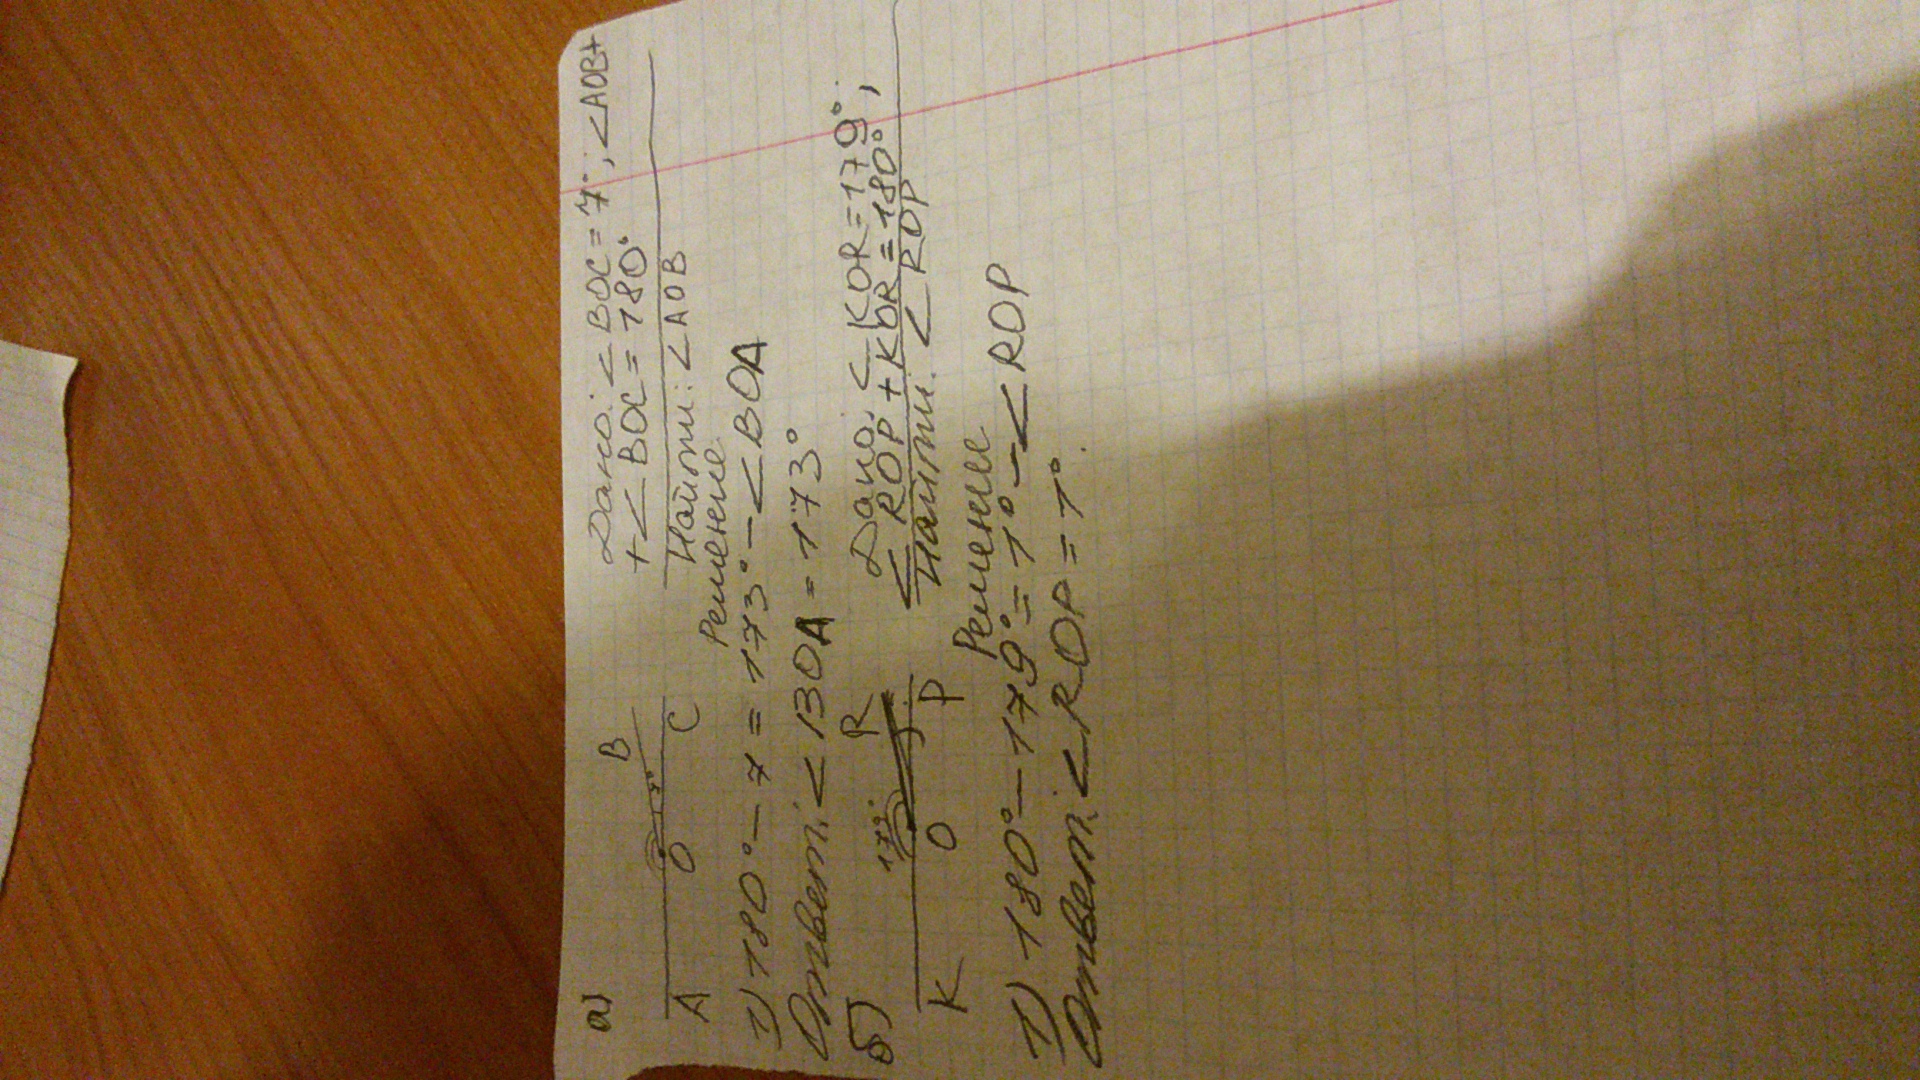 а)
Дано: <BOC = 7°; <AOB+
+< BOC = 180°
Найти: <AOB
B
7°
A O C
Решение
1) 180° – 7 = 173° – <BOA
Ответ: <BOA = 173°
б)
Дано: < KOR = 179°;
< ROP + KOR = 180°
Найти: < ROP
R
179°
K O P
Решение
1) 180° – 179° = 1° – <ROP
Ответ: <ROP = 1°.